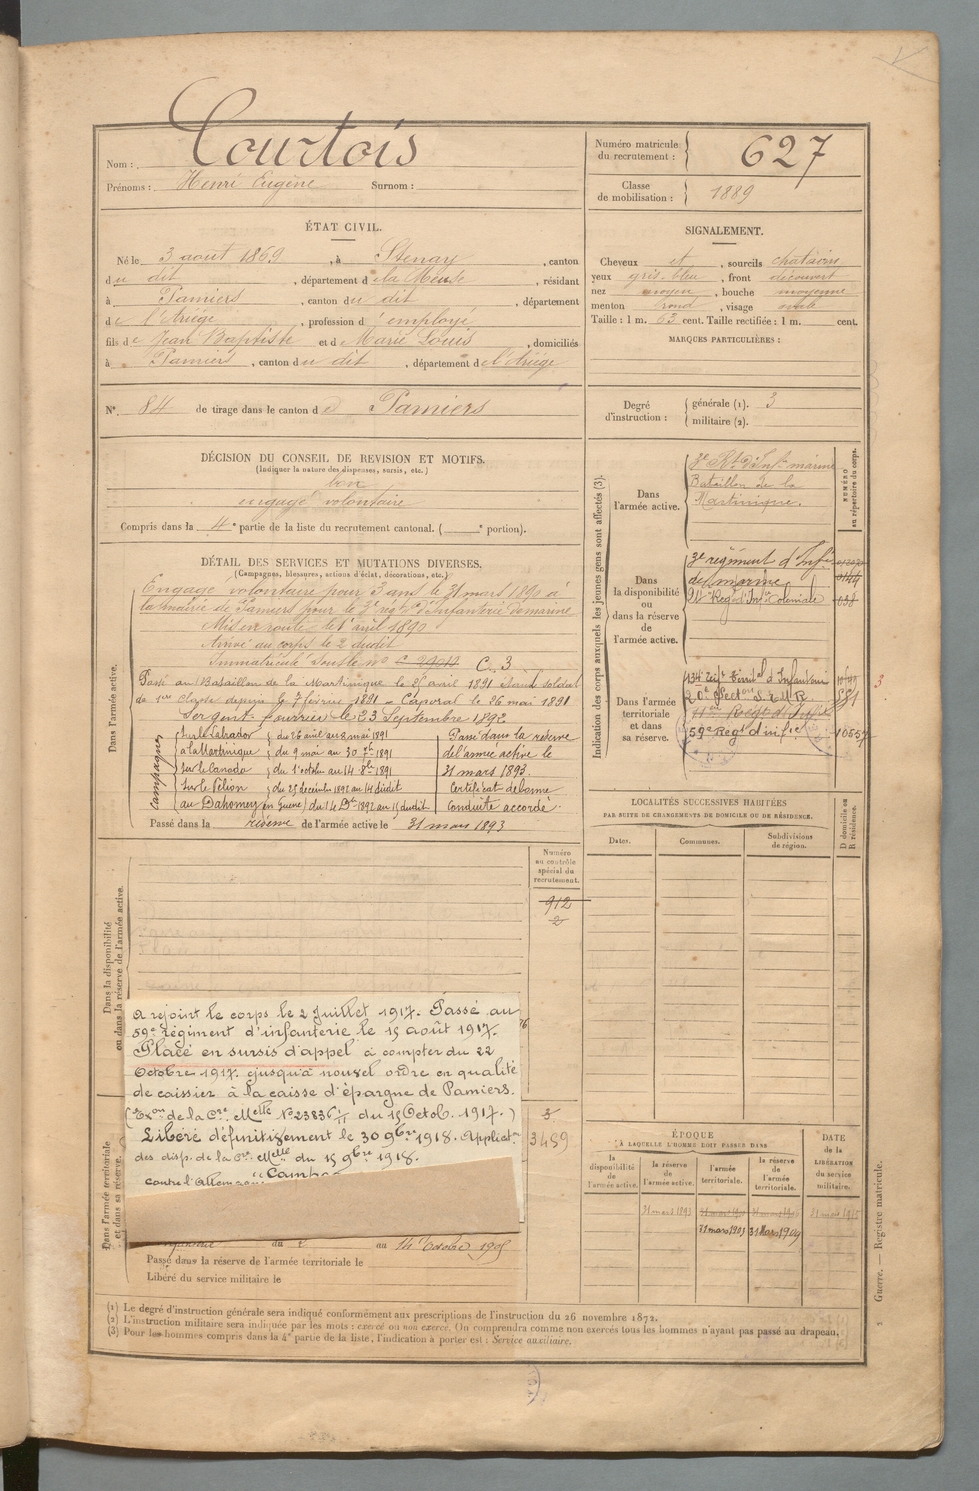 Nom : Courtois
Prénoms : Henri Eugène Surnom :
Numéro matricule du recrutement : 627
Classe de mobilisation : 1889
ÉTAT CIVIL.
Né le 3 août 1869, à Stenay, canton
du dit, département de la Meuse, résidant
à Pamiers, canton du dit, département
de l'Ariège, profession d'employé
fils de Jean Baptiste et de Marie Louis, domiciliés
à Pamiers, canton du dit, département de l'Ariège
N° 84 de tirage dans le canton de Pamiers
SIGNALEMENT.
Cheveux et, sourcils châtains
yeux gris-bleu, front découvert
nez moyen, bouche moyenne
menton rond, visage ovale
Taille : 1 m. 63 cent. Taille rectifiée : 1 m. cent.
MARQUES PARTICULIÈRES :
Degré d'instruction : générale (1). 3
militaire (2).
DÉCISION DU CONSEIL DE REVISION ET MOTIFS.
(Indiquer la nature des dispenses, sursis, etc.)
bon
engagé volontaire
Compris dans la 4e partie de la liste du recrutement cantonal. ( e portion).
DÉTAIL DES SERVICES ET MUTATIONS DIVERSES.
(Campagnes, blessures, actions d'éclat, décorations, etc.)
Dans l'armée active.
Engagé volontaire pour 3 ans le 31 mars 1890 à
la mairie de Pamiers pour le 3e régt d'Infanterie de marine
Mis en route le 1er avril 1890
Arrivé au corps le 2 dudit
Immatriculé sous le n° C. 3
Passé au Bataillon de la Martinique le 26 avril 1891 étant soldat
de 1re Classe depuis le 7 février 1891 - Caporal le 26 mai 1891
Sergent fourrier le 23 Septembre 1892
Campagnes
Sur le Labrador du 26 avril au 8 mai 1891
à la Martinique du 9 mai au 30 7bre 1891
Sur le Canada du 1er octobre au 14 8bre 1891
Sur le Pélion du 25 decembre 1892 au 14 dudit
au Dahomey en Guerre
Passé dans la réserve
de l'armée active le
31 mars 1893.
Certificat de bonne
conduite accordé.
Passé dans la réserve de l'armée active le 31 mars 1893
Indication des corps auxquels les jeunes gens sont affectés (3).
NUMÉRO au répertoire du corps.
Dans l'armée active.
3e Rt d'Infie marine
Bataillon de la
Martinique.
Dans la disponibilité ou dans la réserve de l'armée active.
3e régiment d'Infie
de marine
Régt d'Infie Coloniale
038
Dans l'armée territoriale et dans sa réserve.
134e Régt Territal d'Infanterie
20e Section S.E.M.R
881
59e Régt d'infie 10557
3
LOCALITÉS SUCCESSIVES HABITÉES
PAR SUITE DE CHANGEMENTS DE DOMICILE OU DE RÉSIDENCE.
Dates. Communes. Subdivisions de région. D domicile ou R résidence.
Dans la disponibilité ou dans la réserve de l'armée active.
Numéro au contrôle spécial du recrutement.
912
2
a rejoint le corps le 2 Juillet 1917. Passé au
59e régiment d'infanterie le 15 août 1917.
Placé en sursis d'appel à compter du 22
Octobre 1917 jusqu'à nouvel ordre en qualité
de caissier à la caisse d'épargne de Pamiers.
(Exon de la Cre Melle N° 23836 du 15 Octob. 1917.)
Libéré définitivement le 30 9bre 1918. Applicat.
des disp. de la Cre. Melle du 15 9bre 1918.
contre l'Allemagne
3
3489
Dans l'armée territoriale et dans sa réserve.
du 2 au 14 Octobre 1905
Passé dans la réserve de l'armée territoriale le
Libéré du service militaire le
ÉPOQUE
À LAQUELLE L'HOMME DOIT PASSER DANS
la disponibilité de l'armée active.
la réserve de l'armée active.
l'armée territoriale.
la réserve de l'armée territoriale.
DATE de la LIBÉRATION du service militaire.
31 mars 1893
31 mars 1903 31 Mars 1909
31 mars 1915
(1) Le degré d'instruction générale sera indiqué conformément aux prescriptions de l'instruction du 26 novembre 1872.
(2) L'instruction militaire sera indiquée par les mots : exercé ou non exercé. On comprendra comme non exercés tous les hommes n'ayant pas passé au drapeau.
(3) Pour les hommes compris dans la 4e partie de la liste, l'indication à porter est : Service auxiliaire.
Guerre. — Registre matricule.